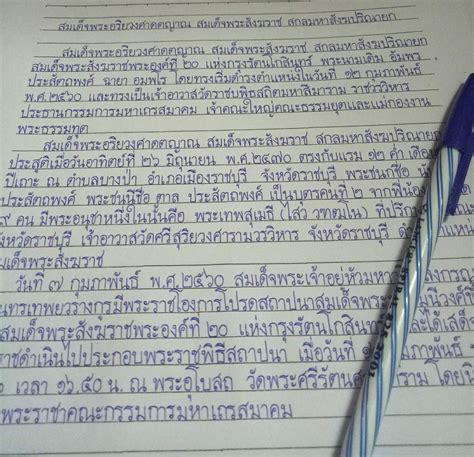 สมเด็จพระอริยวงศาคตญาณ สมเด็จพระสังฆราช สกลมหาสังฆปริณายก
สมเด็จพระอริยวงศาคตญาณ สมเด็จพระสังฆราช สกลมหาสังฆปริณายก
สมเด็จพระสังฆราชพระองค์ที่ ๒๐ แห่งกรุงรัตนโกสินทร์ พระนามเดิม อัมพร
ประสัตถพงศ์ ฉายา อมฺพโร โดยทรงเริ่มดำรงตำแหน่งในวันที่ ๑๒ กุมภาพันธ์
พ.ศ.๒๕๖๐ และทรงเป็นเจ้าอาวาสวัดราชบพิธสถิตมหาสีมาราม ราชวรวิหาร
ประธานกรรมการมหาเถรสมาคม เจ้าคณะใหญ่คณะธรรมยุตและแม่กองงาน
พระธรรมทูต
สมเด็จพระอริยวงศาคตญาณ สมเด็จพระสังฆราช สกลมหาสังฆปริณายก
ประสูติเมื่อวันอาทิตย์ที่ ๒๖ มิถุนายน พ.ศ.๒๔๗๐ ตรงกับแรม ๑๒ ค่ำ เดือน
ปีเถาะ ณ ตำบลบางป่า อำเภอเมืองราชบุรี จังหวัดราชบุรี พระชนกชื่อ
ประสัตถพงศ์ พระชนนีชื่อ ตาล ประสัตถพงศ์ เป็นบุตรคนที่ ๒ จากพี่น้อง
๙ คน มีพระอนุชาหนึ่งในนั้นคือ พระเทพสุเมธี (ไสว วฑฺฒโน) ที่ปรึกษา
จังหวัดราชบุรี เจ้าอาวาสวัดศรีสุริยวงศารามวรวิหาร จังหวัดราชบุรี
สมเด็จพระสังฆราช
วันที่ ๗ กุมภาพันธ์ พ.ศ.๒๕๖๐ สมเด็จพระเจ้าอยู่หัวมหา ลงกรณ
นทรเทพยวรางกูรมีพระราชโองการโปรดสถาปนาสมเด็จพระ มุนีวงศ์
สมเด็จพระสังฆราชพระองค์ที่ ๒๐ แห่งกรุงรัตนโกสินทร์ และได้เสด็จ
ราชดำเนินไปประกอบพระราชพิธีสถาปนา เมื่อวันที่ กุมภาพันธ์
เวลา ๑๖.๕๐ น. ณ พระอุโบสถ วัดพระศรีรัตน ราม โดย
พระราชาคณะกรรมการมหาเถรสมาคม